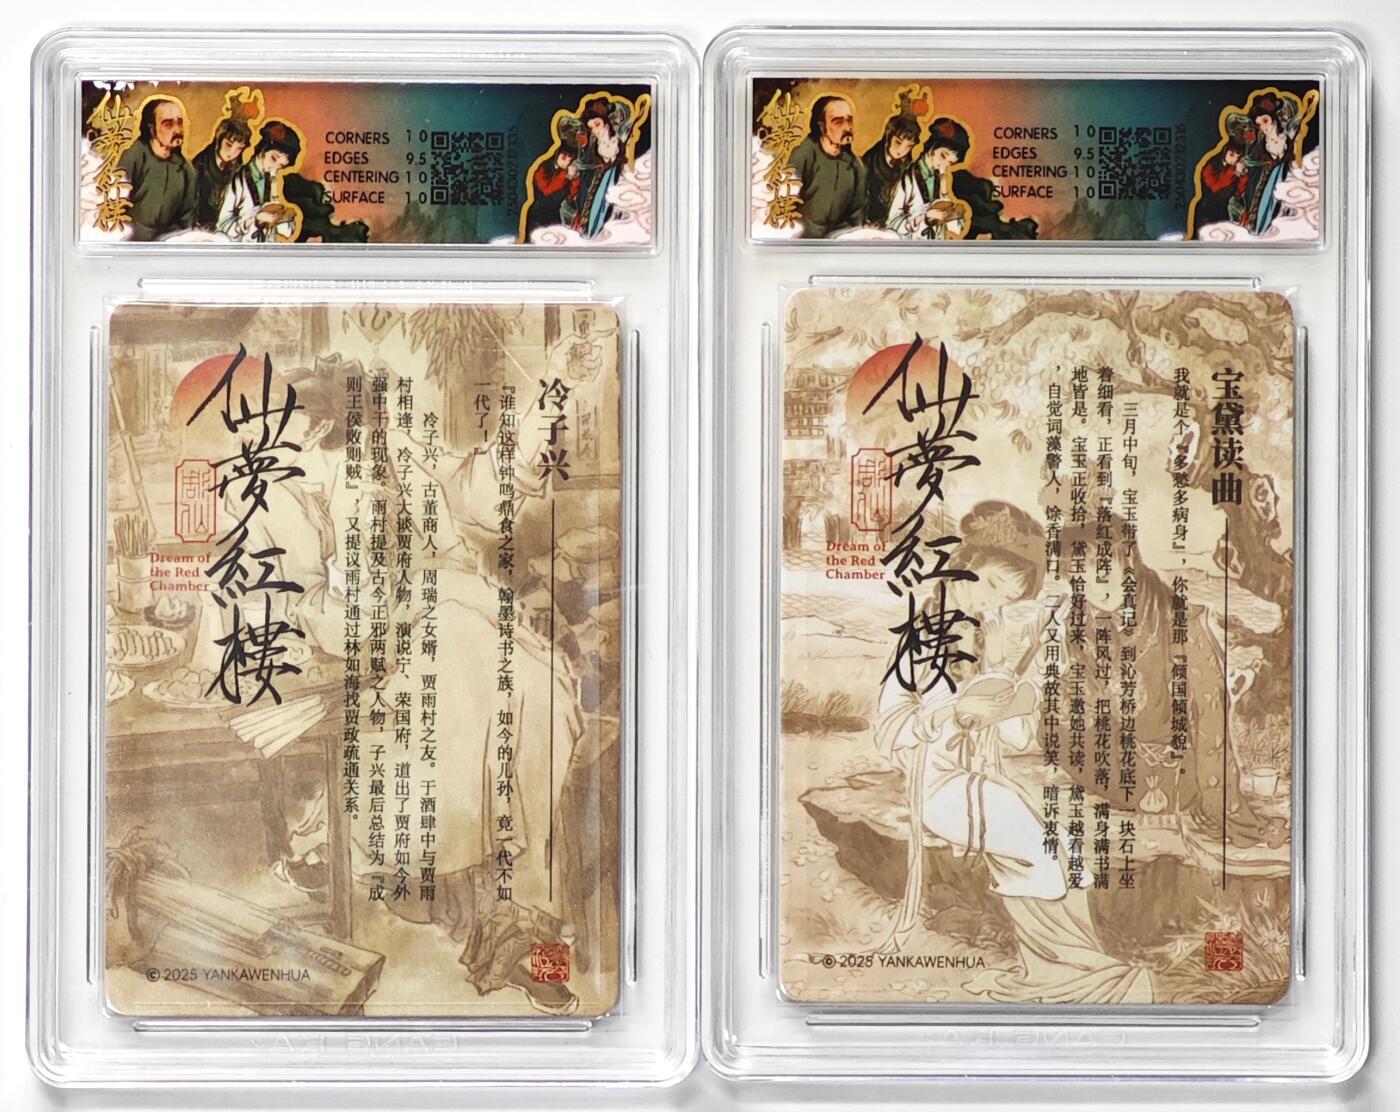 仙夢紅樓
CORNERS 10
EDGES 9.5
CENTERING 10
SURFACE 10
仙夢紅樓
Dream of
the Red
Chamber
冷子兴
『谁知这样钟鸣鼎食之家，翰墨诗书之族，如今的儿孙，竟一代不如
一代了！』
冷子兴，古董商人，周瑞之女婿，贾雨村之友。于酒肆中与贾雨
村相逢，冷子兴大谈贾府人物，演说宁、荣国府，道出了贾府如今外
强中干的现象。雨村提及古今正邪两赋之人物，子兴最后总结为『成
则王侯败则贼』，又提议雨村通过林如海找贾政疏通关系。
© 2025 YANKAWENHUA
仙夢紅樓
CORNERS 10
EDGES 9.5
CENTERING 10
SURFACE 10
仙夢紅樓
Dream of
the Red
Chamber
宝黛读曲
我就是个『多愁多病身』，你就是那『倾国倾城貌』。
三月中旬，宝玉带了《会真记》到沁芳桥边桃花底下一块石上坐
着细看，正看到『落红成阵』，一阵风过，把桃花吹落，满身满书满
地皆是。宝玉正收拾，黛玉恰好过来，宝玉邀她共读，黛玉越看越爱
，自觉词藻警人，馀香满口。二人又用典故其中说笑，暗诉衷情。
© 2025 YANKAWENHUA